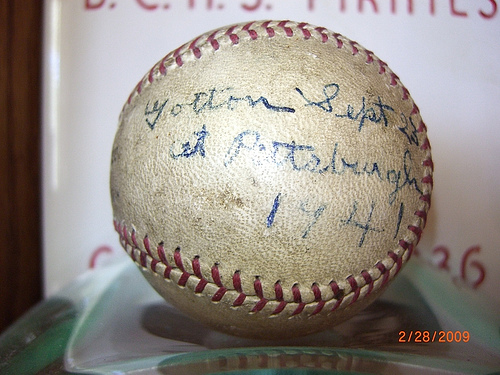 B. C. H. S. PIRATES
Gotton Sept 28
at Pittsburgh
1941
36
2/28/2009